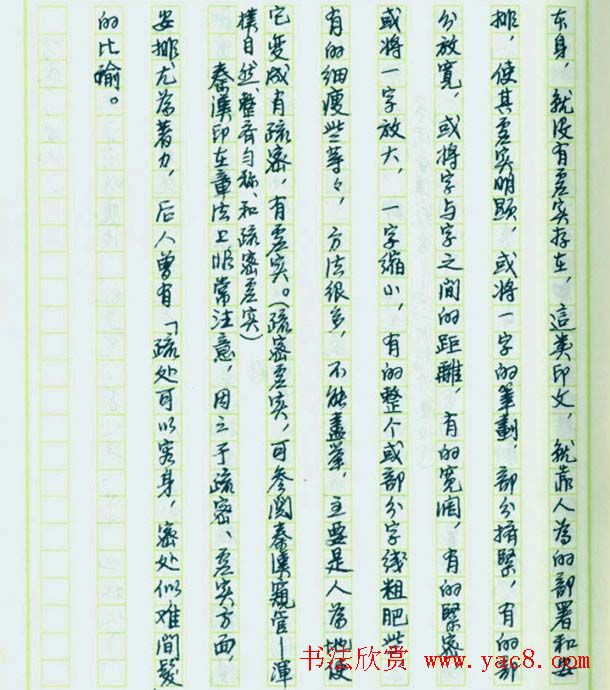 本身，就没有虚实存在，這类印文，就靠人为的部署和安
排，使其虚实明顯，或将一字的筆劃，部分擠緊，有的部
分放寬，或将字与字之间的距離，有的寬闊，有的緊密
或将一字放大，一字缩小，有的整个或部分字线粗肥些
有的细瘦些等々，方法很多，不能盡举，主要是人为地使
它变成有疏密，有虚实。（疏密虚实，可参阅秦漢窺管－渾
樸自然、整齐匀称、和疏密虚实）
秦漢印在章法上非常注意，因之于疏密、虚实方面，
安排尤为著力，后人曾有「疏处可以容身，密处似难間髮
的比喻。
书法欣赏 www.yac8.com